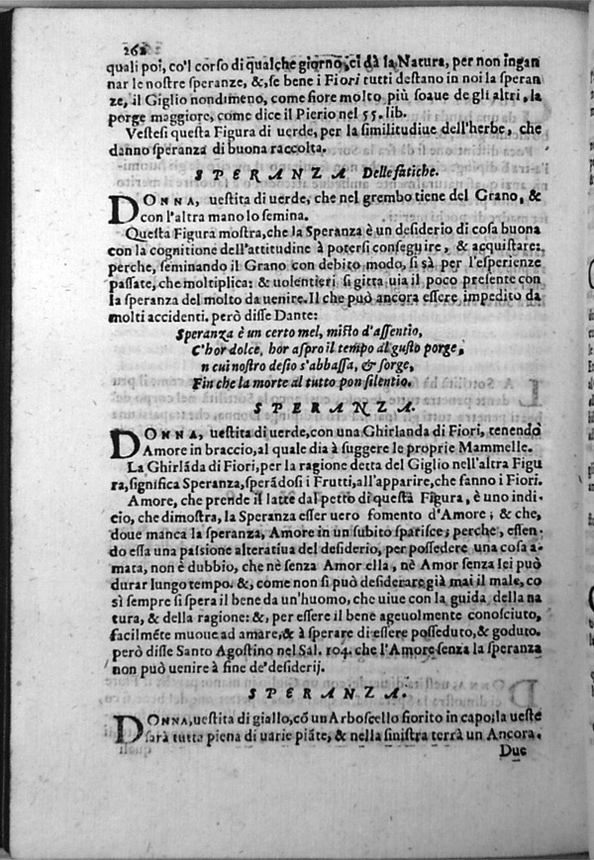 262
quali poi, co'l corso di qualche giorno, ci dà la Natura, per non ingan
nar le nostre speranze, &, se bene i Fiori tutti destano in noi la speran
ze, il Giglio nondimeno, come fiore molto più soaue de gli altri, la
porge maggiore, come dice il Pierio nel 55. lib.
Vestesi questa Figura di uerde, per la similitudiue dell'herbe, che
danno speranza di buona raccolta.
SPERANZA Delle fatiche.
DONNA, uestita di uerde, che nel grembo tiene del Grano, &
con l'altra mano lo semina.
Questa Figura mostra, che la Speranza è un desiderio di cosa buona
con la cognitione dell'attitudine à potersi conseguire, & acquistare:
perche, seminando il Grano con debito modo, si sà per l'esperienze
passate, che moltiplica: & uolentieri si gitta uia il poco presente con
la speranza del molto da uenire. Il che può ancora essere impedito da
molti accidenti. però disse Dante:
Speranza è un certo mel, misto d'assentio,
C'hor dolce, hor aspro il tempo al gusto porge,
n cui nostro desio s'abbassa, & sorge,
Fin che la morte al tutto pon silentio.
SPERANZA.
DONNA, uestita di uerde, con una Ghirlanda di Fiori, tenendo
Amore in braccio, al quale dia à suggere le proprie Mammelle.
La Ghirlāda di Fiori, per la ragione detta del Giglio nell'altra Figu
ra, significa Speranza, sperādosi i Frutti, all'apparire, che fanno i Fiori.
Amore, che prende il latte dal petto di questa Figura, è uno indi-
cio, che dimostra, la Speranza esser uero fomento d'Amore; & che,
doue manca la speranza, Amore in un subito sparisce; perche, essen-
do essa una passione alteratiua del desiderio, per possedere una cosa a-
mata, non è dubbio, che nè senza Amor ella, nè Amor senza lei può
durar lungo tempo. &, come non si può desiderare già mai il male, co
sì sempre si spera il bene da un'huomo, che uiue con la guida della na
tura, & della ragione: &, per essere il bene ageuolmente conosciuto,
facilmēte muoue ad amare, & à sperare di essere posseduto, & goduto.
però disse Santo Agostino nel Sal. 104. che l'Amore senza la speranza
non può uenire à fine de' desiderij.
SPERANZA.
DONNA, uestita di giallo, cō un Arboscello fiorito in capo; la ueste
sarà tutta piena di uarie piāte, & nella sinistra terrà un Ancora.
Due